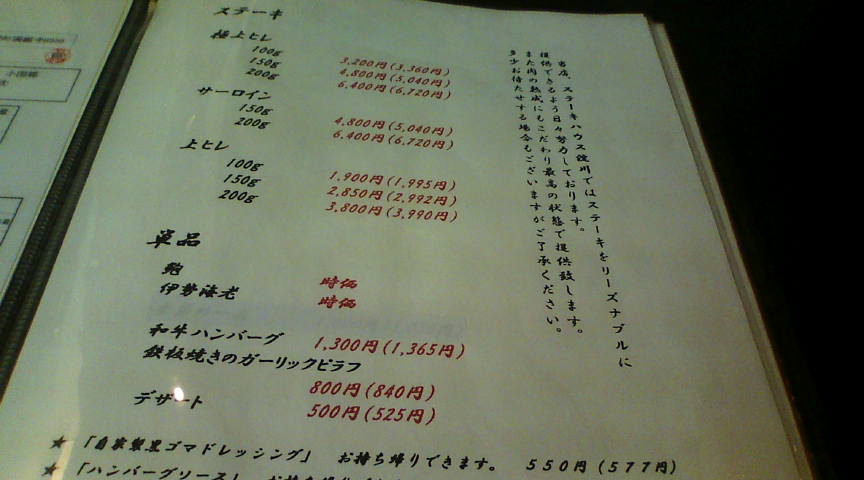 ステーキ
極上ヒレ
100g 3,200円(3,360円)
150g 4,800円(5,040円)
200g 6,400円(6,720円)
サーロイン
150g 4,800円(5,040円)
200g 6,400円(6,720円)
上ヒレ
100g 1,900円(1,995円)
150g 2,850円(2,992円)
200g 3,800円(3,990円)
単品
鮑 時価
伊勢海老 時価
和牛ハンバーグ 1,300円(1,365円)
鉄板焼きのガーリックピラフ
800円(840円)
デザート 500円(525円)
★「自家製黒ゴマドレッシング」 お持ち帰りできます。 550円(577円)
★「ハンバーグソース」 お持ち帰り
当店、ステーキハウス 川ではステーキをリーズナブルに
提供できるよう日々努力しております。
また肉の熟成にもこだわり最高の状態で提供致します。
多少お待たせする場合もございますがご了承ください。